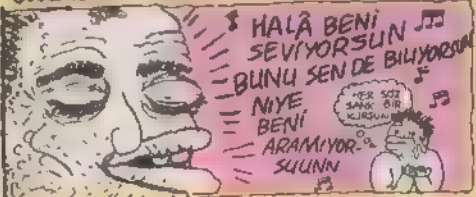 HALÂ BENİ
SEVİYORSUN
BUNU SEN DE BİLİYORSUN
NİYE
BENİ
ARAMIYOR-
SUUNN
HER SÖZ
SANKİ BİR
KURŞUN